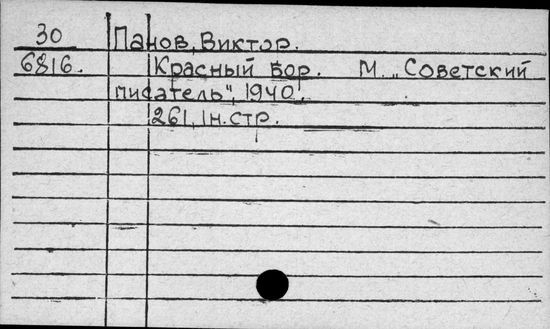 30 Панов, Виктор.
6816. Красный бор. М. „Советский
писатель", 1940.
261, 1н.стр.